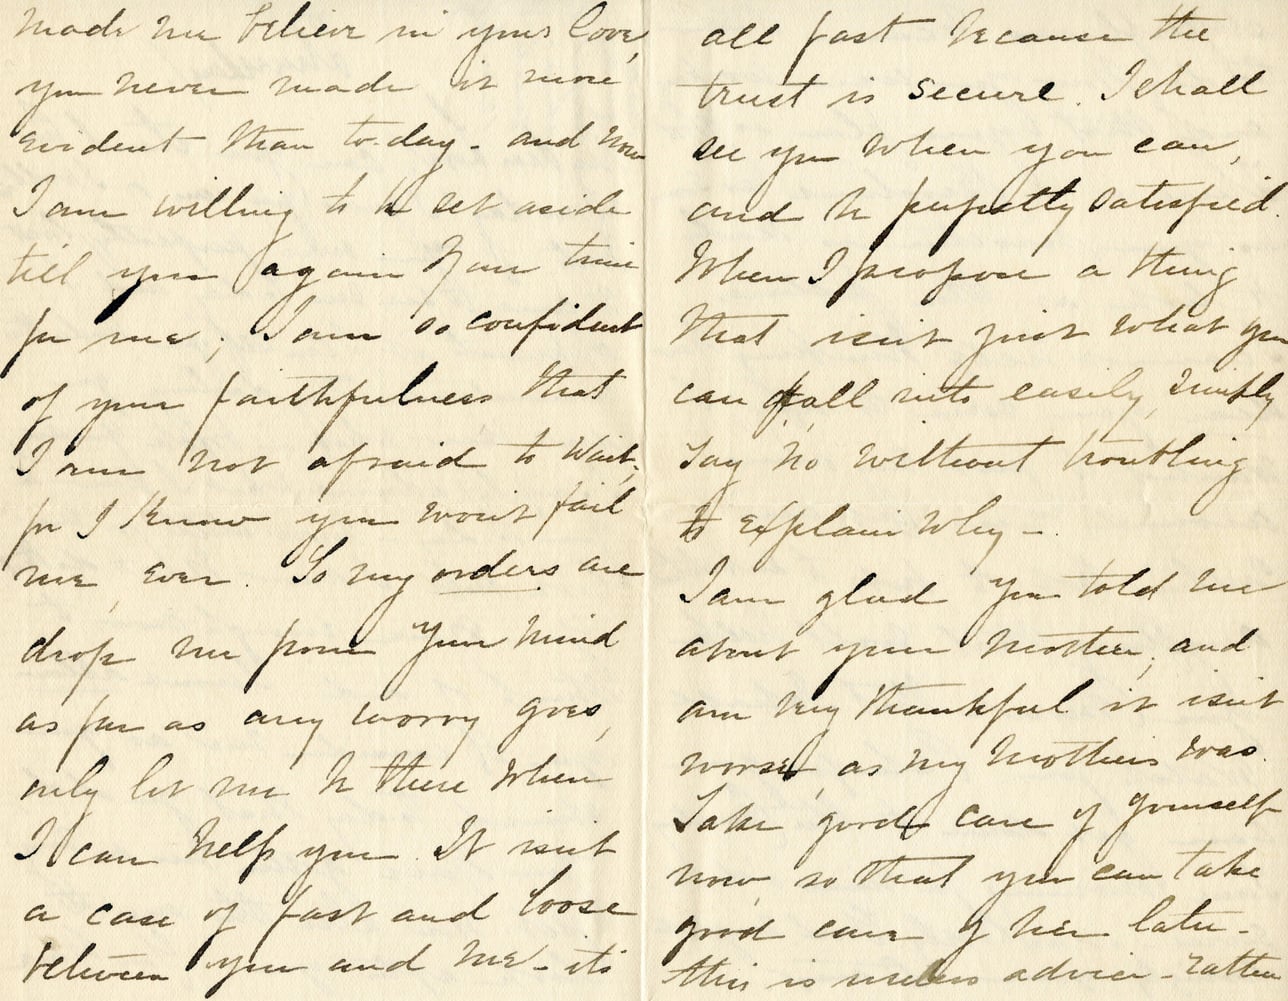 made me believe in your love,
you never made it more
evident than to-day - and now
I am willing to be set aside
till you again have time
for me; I am so confident
of your faithfulness that
I am not afraid to wait,
for I know you won't fail
me, ever. So my orders are
drop me from your mind
as far as any worry goes,
only let me be there when
I can help you. It isn't
a case of fast and loose
between you and me - it's
all fast because the
trust is secure. I shall
see you when you can,
and be perfectly satisfied.
When I propose a thing
that isn't just what you
can fall into easily, simply
say no without troubling
to explain why -
I am glad you told me
about your mother, and
am very thankful it isn't
worse, as my mother's was.
Take good care of yourself
now, so that you can take
good care of her later -
this is useless advice - rather